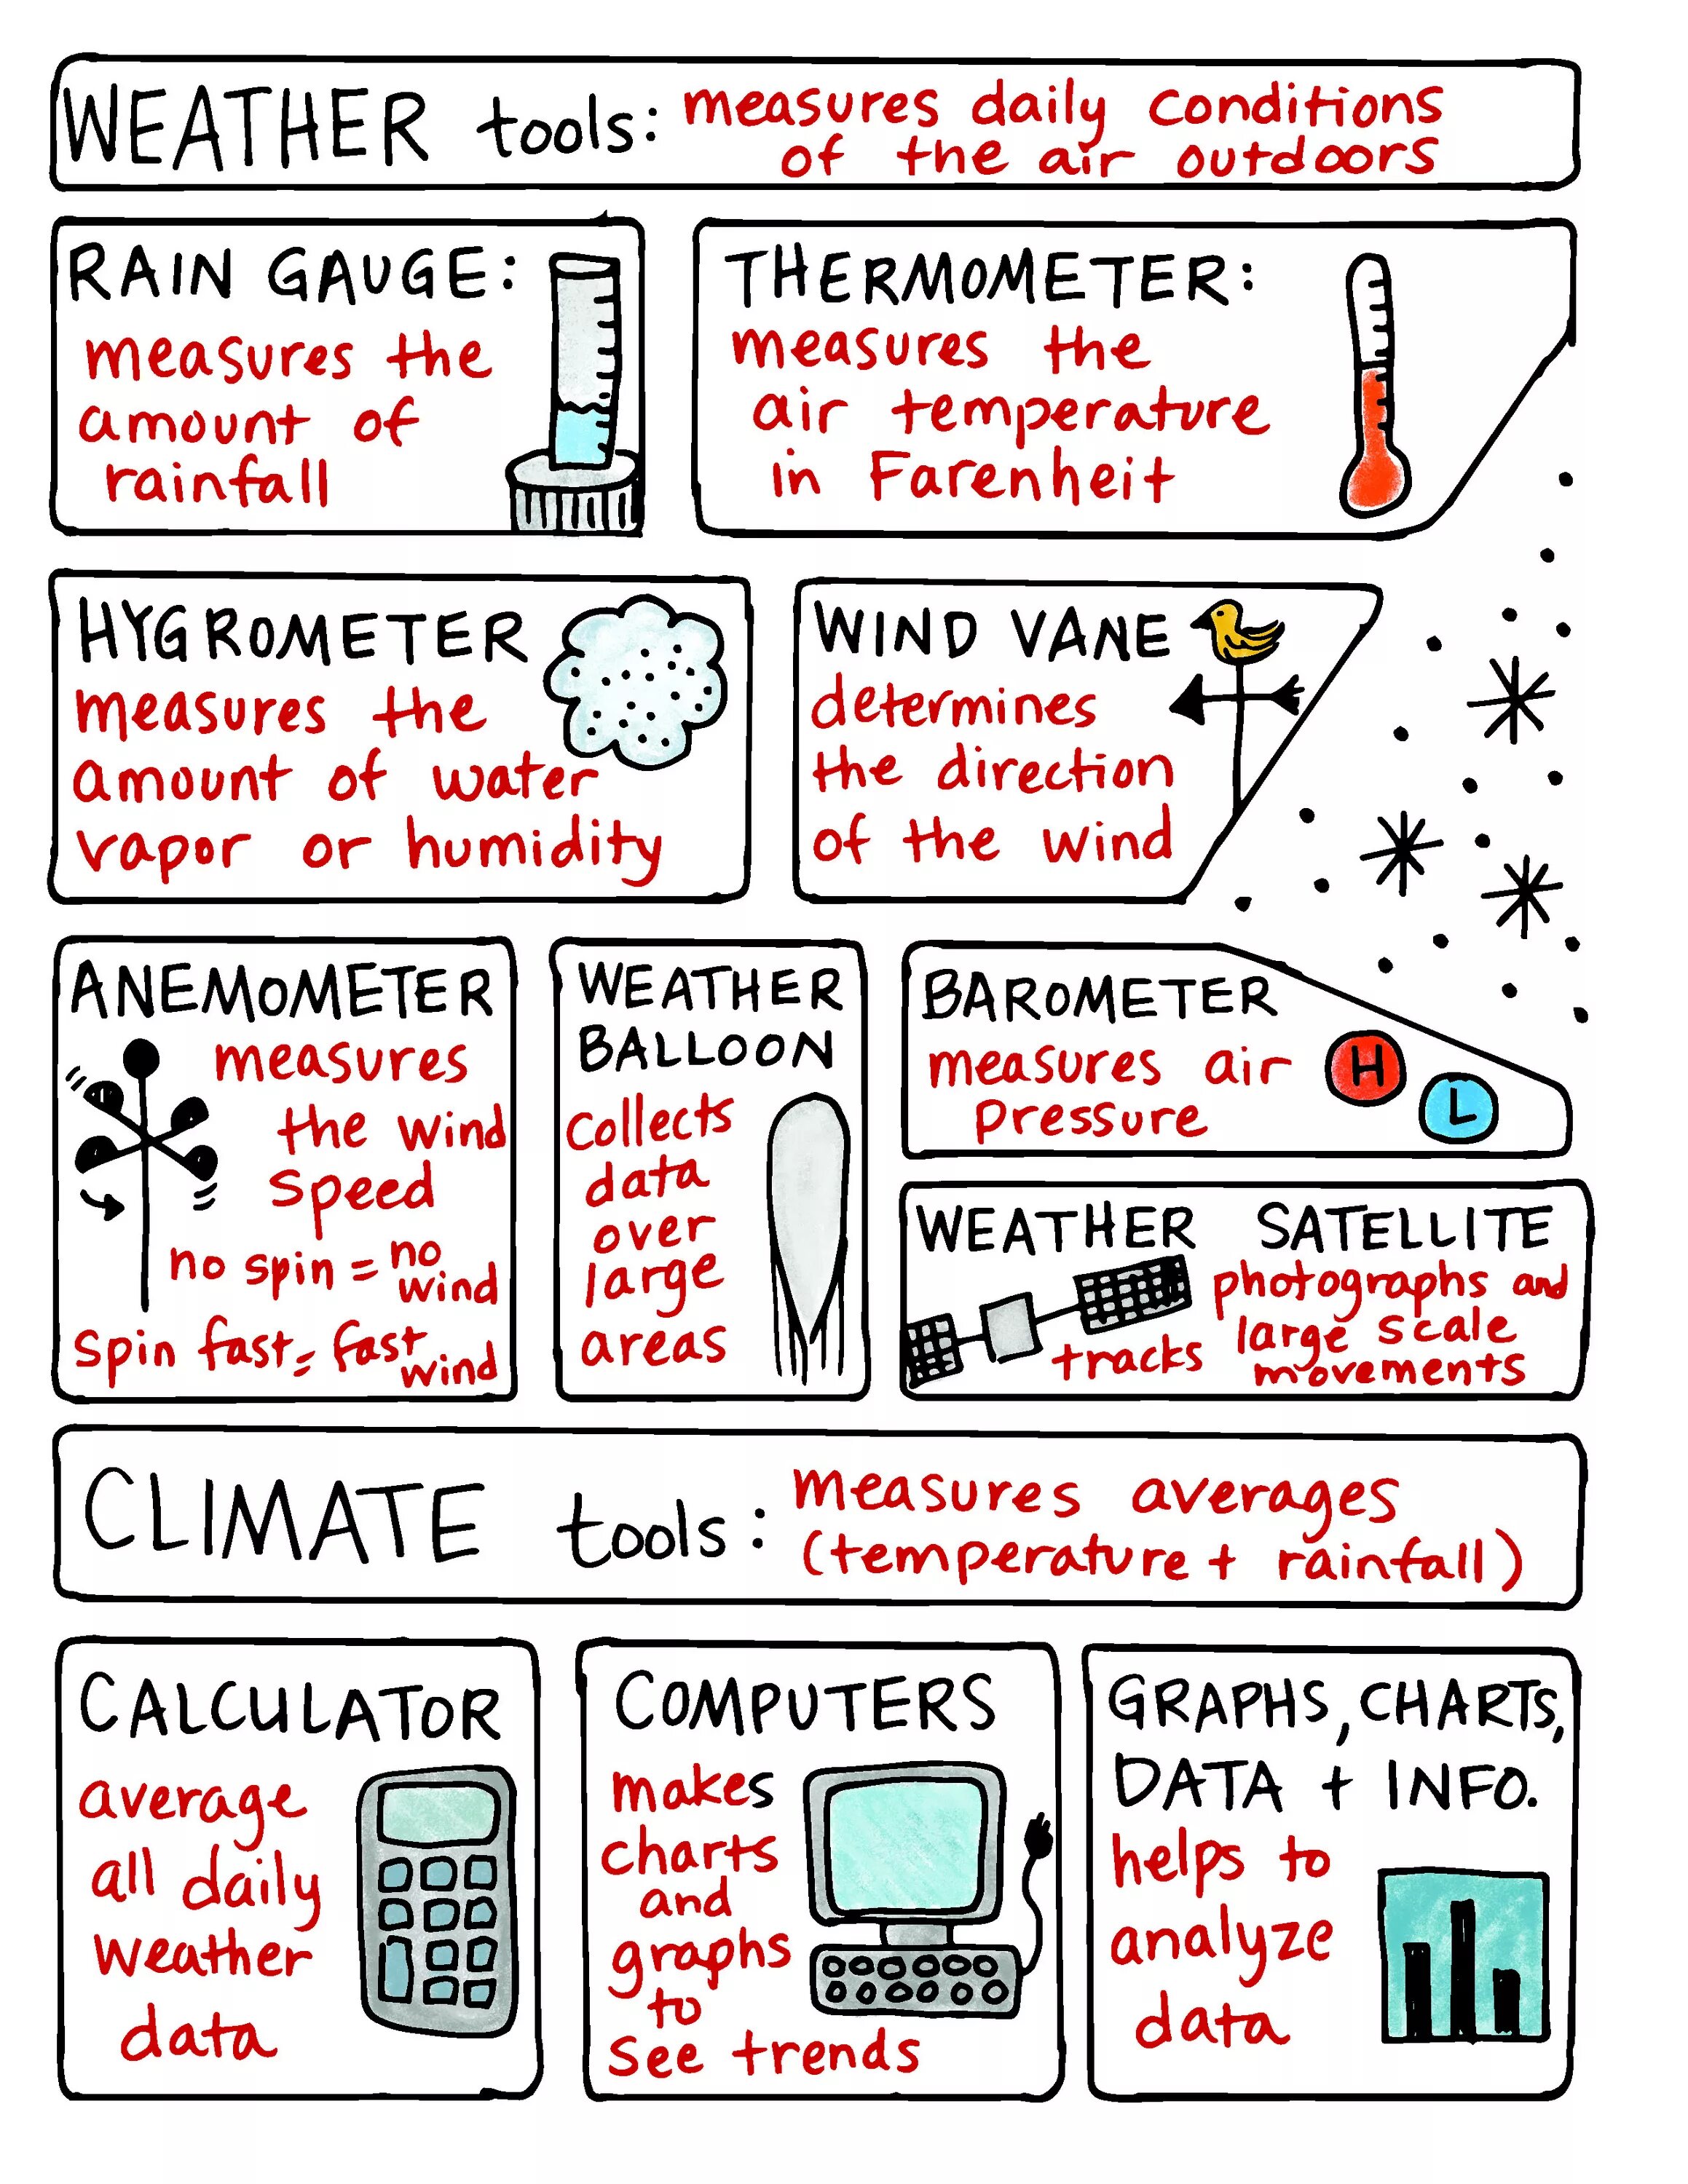 WEATHER tools: measures daily conditions
of the air outdoors
RAIN GAUGE:
measures the
amount of
rainfall
THERMOMETER:
measures the
air temperature
in Farenheit
HYGROMETER
measures the
amount of water
vapor or humidity
WIND VANE
determines
the direction
of the wind
ANEMOMETER
measures
the wind
speed
no spin = no
wind
spin fast = fast
wind
WEATHER
BALLOON
collects
data
over
large
areas
BAROMETER
measures air
pressure
H
L
WEATHER SATELLITE
photographs and
tracks large scale
movements
CLIMATE tools: measures averages
(temperature + rainfall)
CALCULATOR
average
all daily
weather
data
COMPUTERS
makes
charts
and
graphs
to
see trends
GRAPHS, CHARTS,
DATA + INFO.
helps to
analyze
data